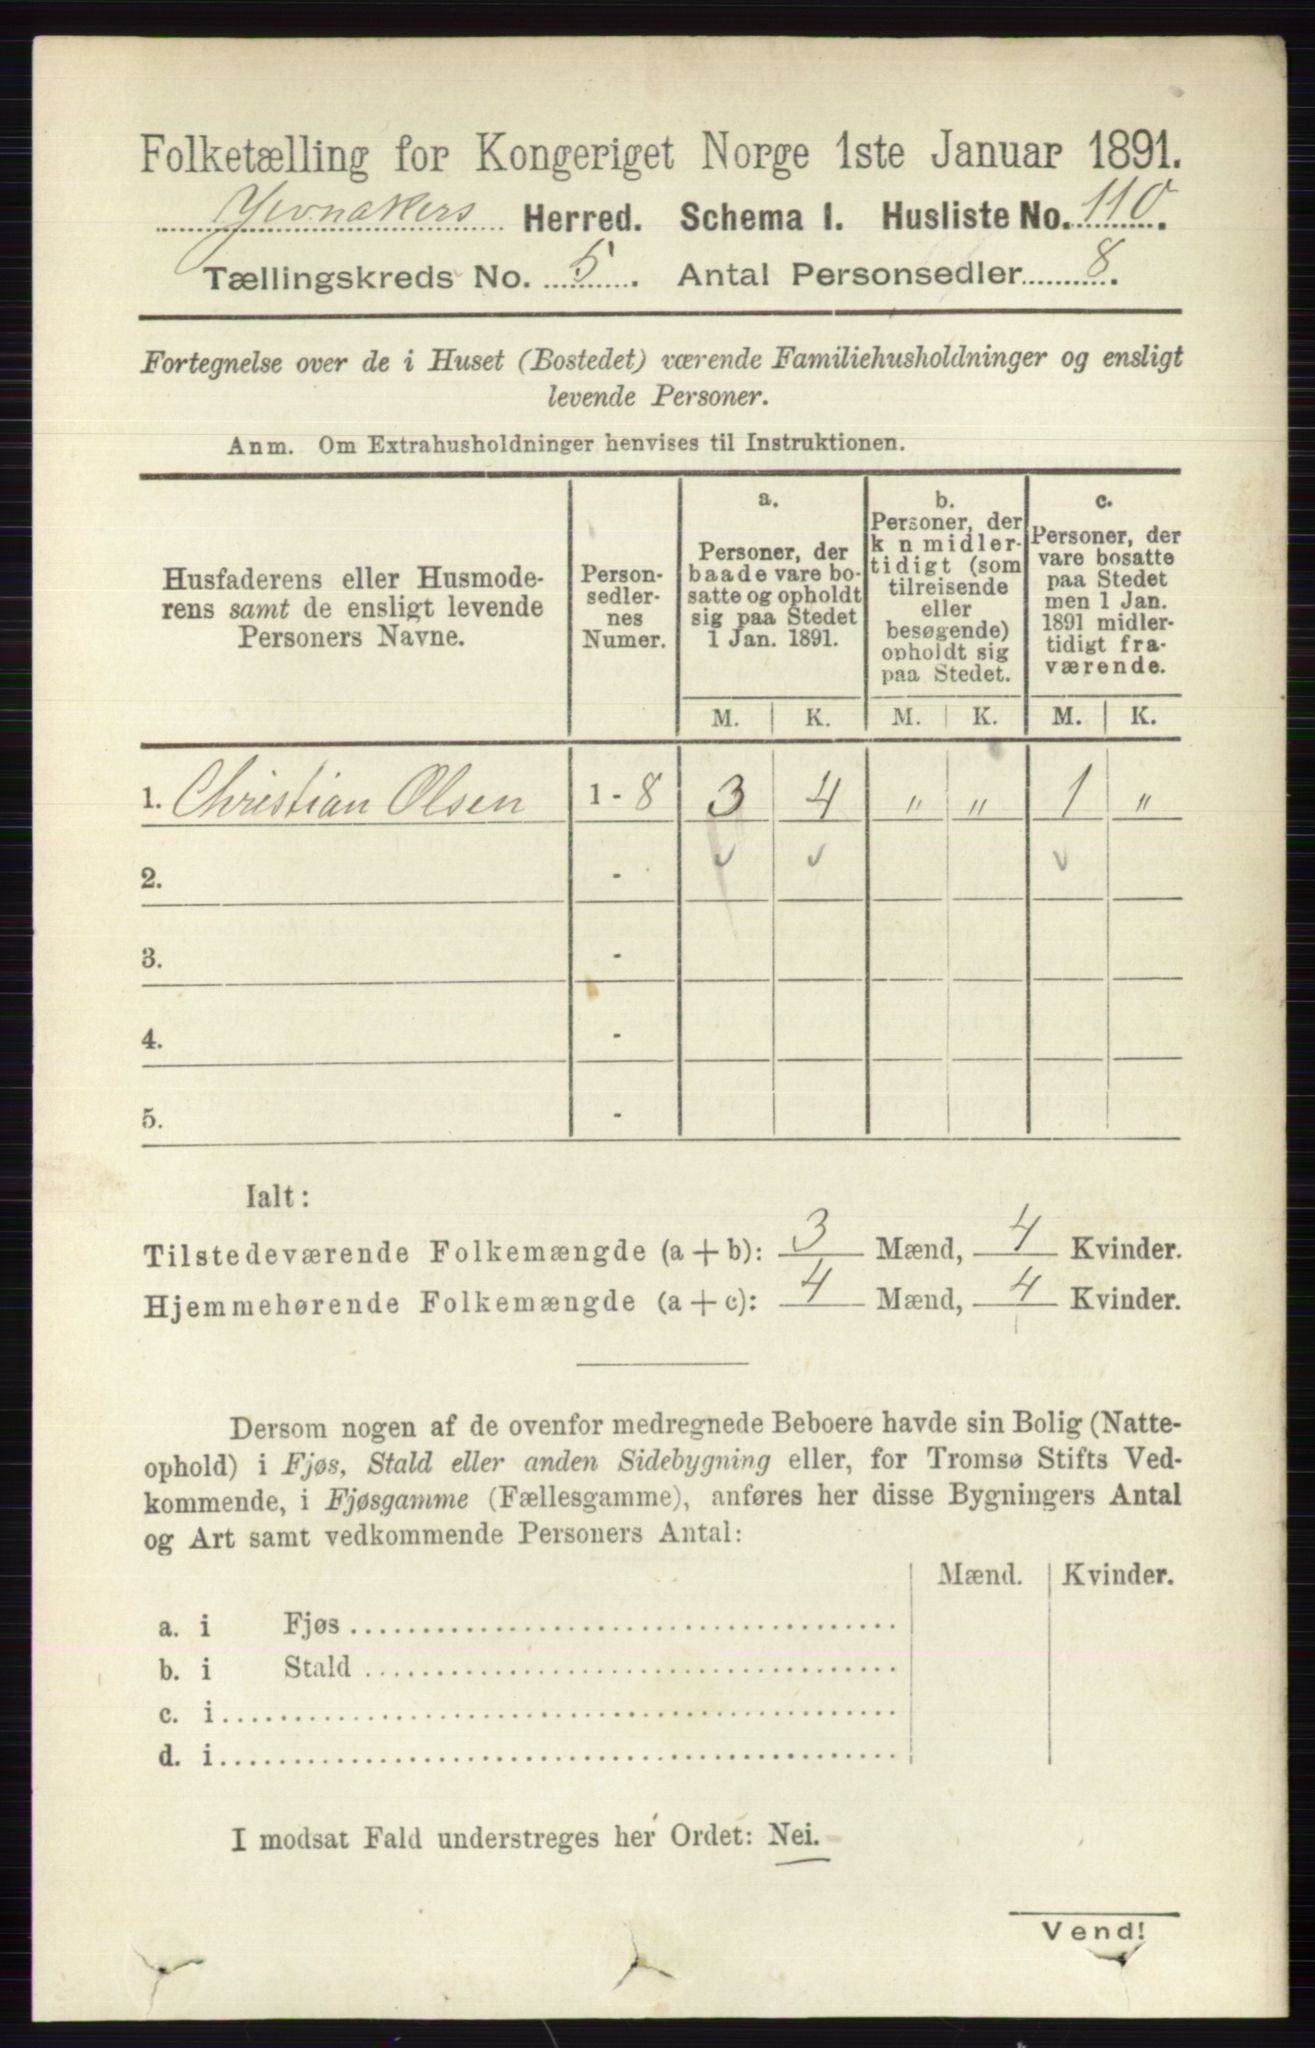 Folketælling for Kongeriget Norge 1ste Januar 1891.
Jevnakers Herred. Schema I. Husliste No. 110.
Tællingskreds No. 5. Antal Personsedler 8.
Fortegnelse over de i Huset (Bostedet) værende Familiehusholdninger og ensligt
levende Personer.
Anm. Om Extrahusholdninger henvises til Instruktionen.
Husfaderens eller Husmode-
rens samt de ensligt levende
Personers Navne.
Person-
sedler-
nes
Numer.
a.
Personer, der
baade vare bo-
satte og opholdt
sig paa Stedet
1 Jan. 1891.
b.
Personer, der
k n midler-
tidigt (som
tilreisende
eller
besøgende)
opholdt sig
paa Stedet.
c.
Personer, der
vare bosatte
paa Stedet
men 1 Jan.
1891 midler-
tidigt fra-
værende.
M. K. M. K. M. K.
1. Christian Olsen 1 - 8 3 4 " " 1 "
2. - ✓ ✓ ✓
3. -
4. -
5. -
Ialt:
Tilstedeværende Folkemængde (a + b): 3 Mænd, 4 Kvinder.
Hjemmehørende Folkemængde (a + c): 4 Mænd, 4 Kvinder.
Dersom nogen af de ovenfor medregnede Beboere havde sin Bolig (Natte-
ophold) i Fjøs, Stald eller anden Sidebygning eller, for Tromsø Stifts Ved-
kommende, i Fjøsgamme (Fællesgamme), anføres her disse Bygningers Antal
og Art samt vedkommende Personers Antal:
Mænd. Kvinder.
a. i Fjøs
b. i Stald
c. i
d. i
I modsat Fald understreges her Ordet: Nei.
Vend!